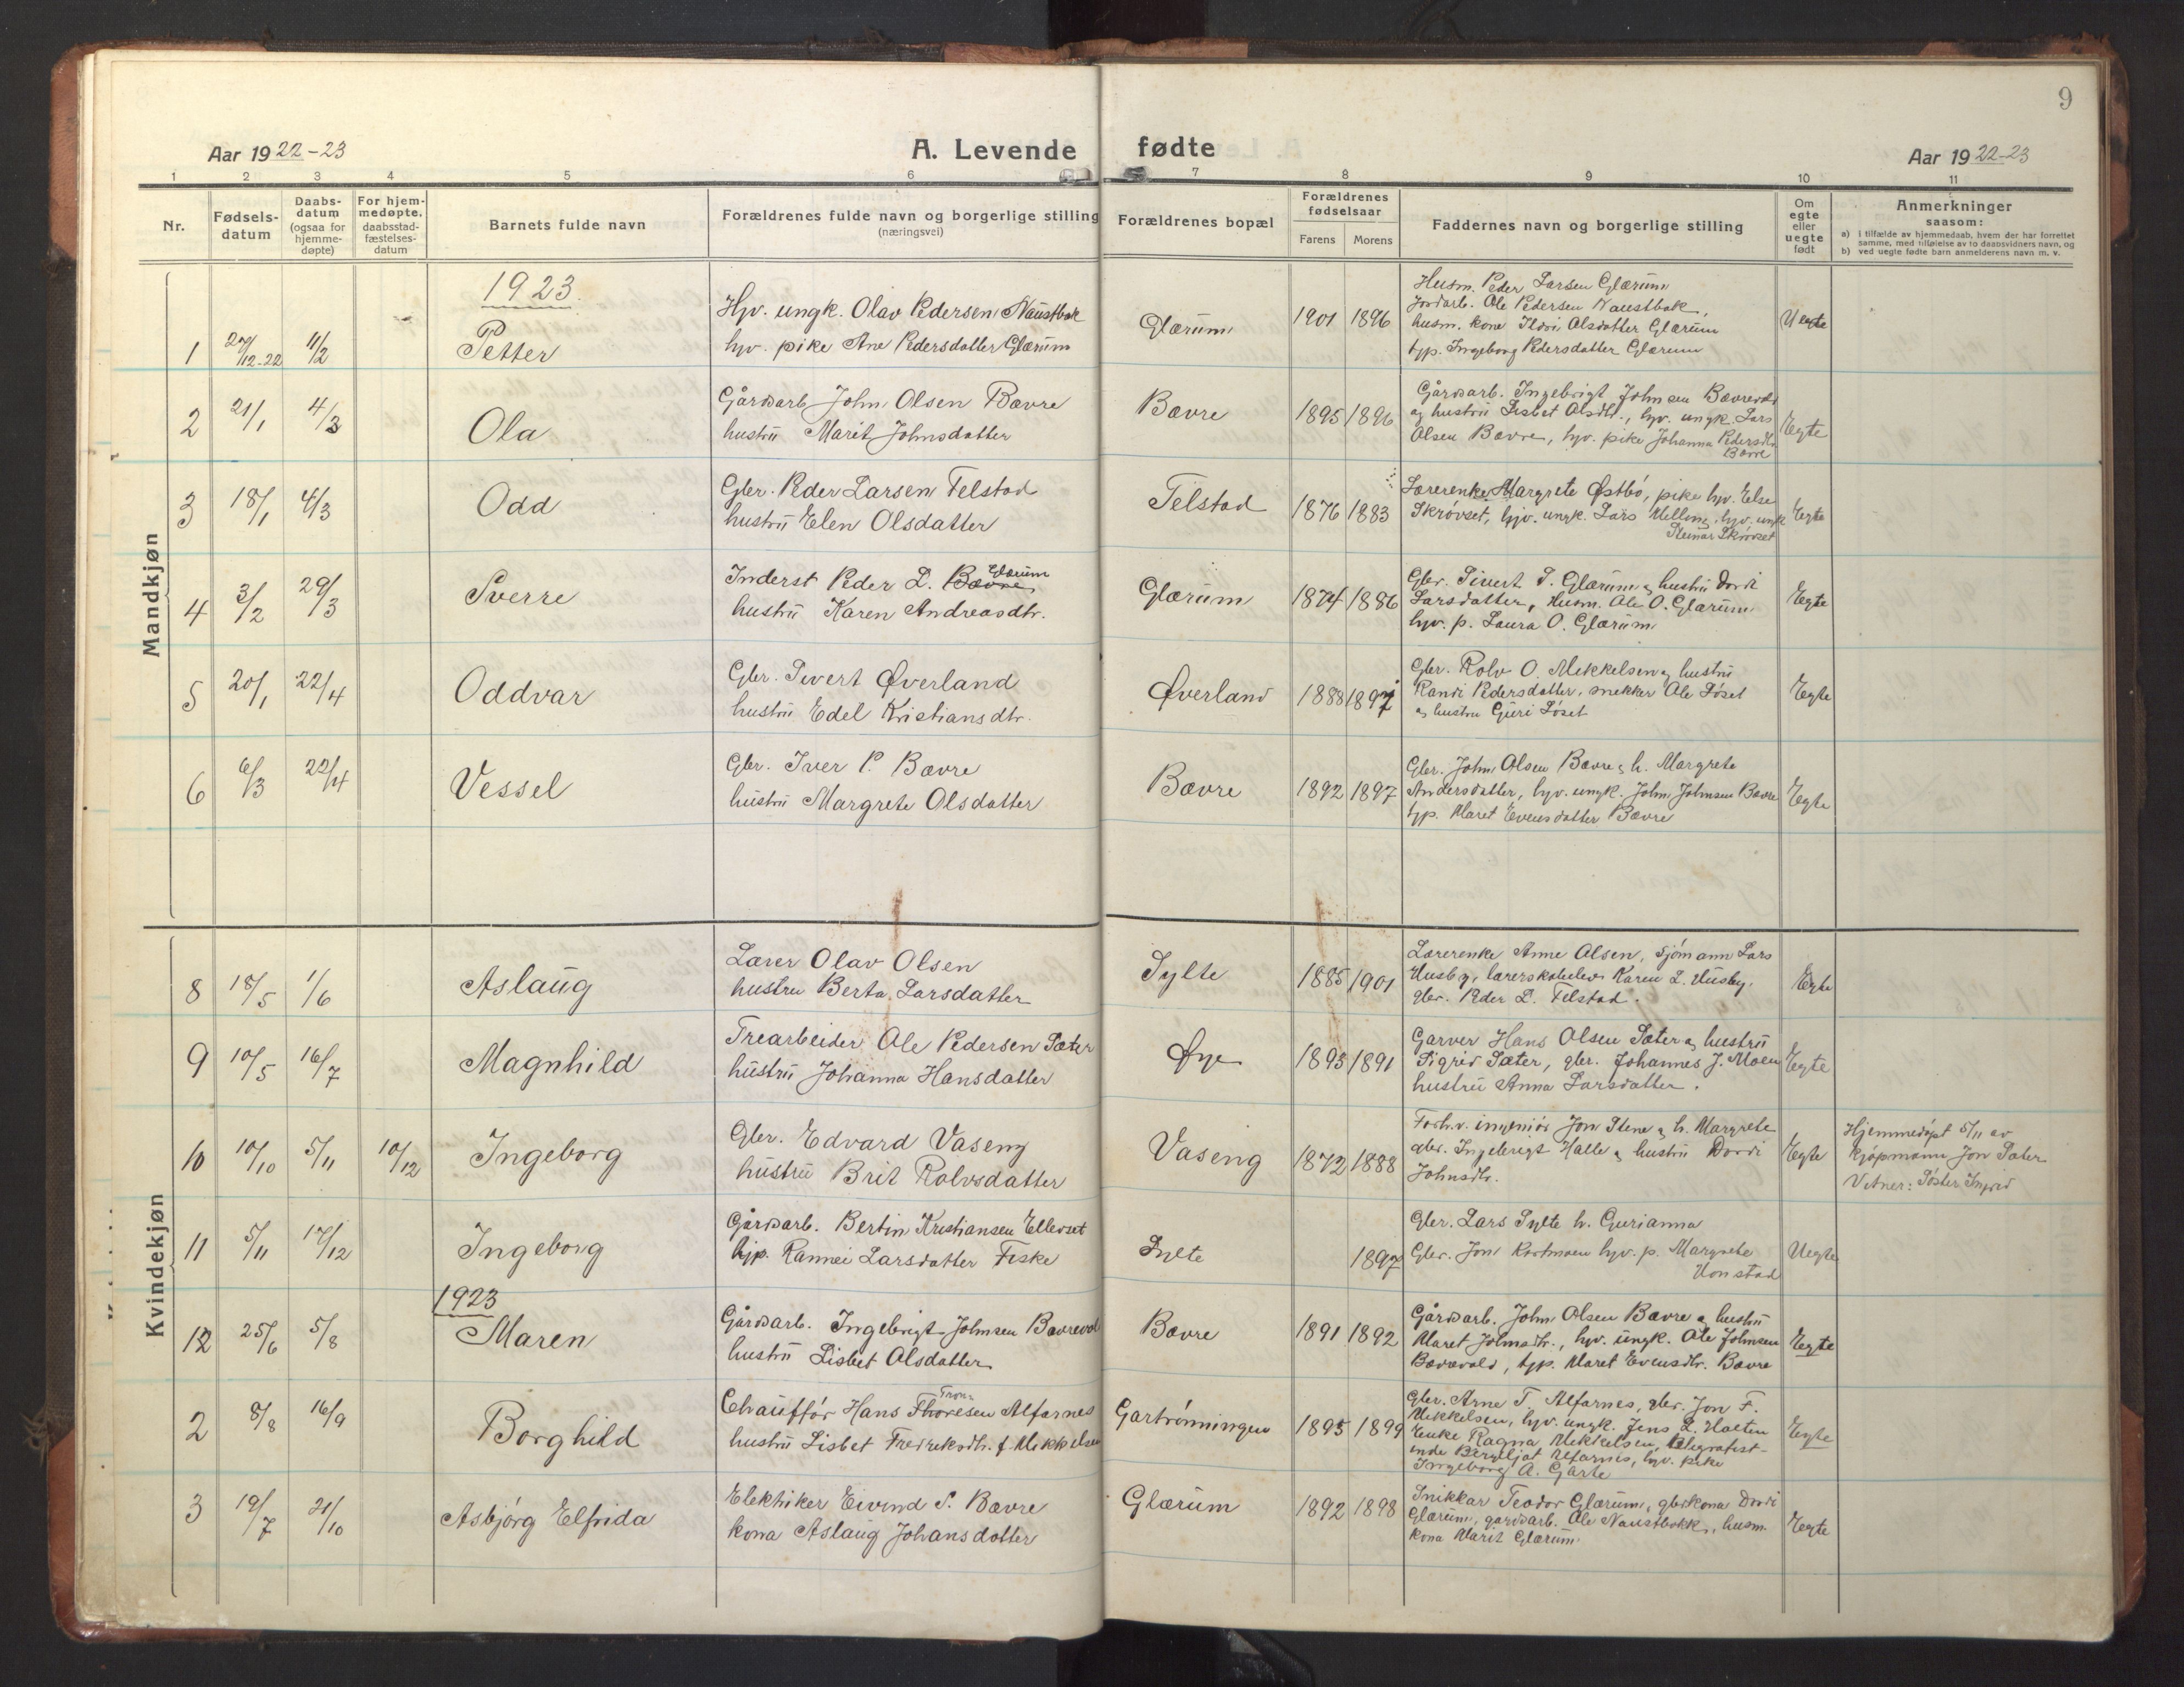 9
Aar 1922-23
A. Levende fødte
Aar 1922-23
1 2 3 4 5 6 7 8 9 10 11
Nr.
Fødsels-
datum
Daabs-
datum
(ogsaa for
hjemme-
døpte)
For hjem-
medøpte,
daabsstad-
fæstelses-
datum
Barnets fulde navn
Forældrenes fulde navn og borgerlige stilling
(næringsvei)
Forældrenes bopæl
Forældrenes
fødselsaar
Farens Morens
Faddernes navn og borgerlige stilling
Om
egte
eller
uegte
født
Anmerkninger
saasom:
a) i tilfælde av hjemmedaab, hvem der har forrettet
samme, med tilføielse av to daabsvidners navn, og
b) ved uegte fødte barn anmelderens navn m. v.
Mandkjøn
1923.
1 27/12-22 11/2
Petter
Hjv. ungk. Olav Pedersen Naustbak
hjv. pike Ane Pedersdatter Glærum
Glærum
1901 1896
Husm. Peder Larsen Glærum
Jordarb. Ole Pedersen Naustbak,
husm. kone Ildri Olsdatter Glærum
tjp. Ingeborg Pedersdatter Glærum
Uegte
2 21/1 4/3
Ola
Gårdarb John Olsen Bævre
hustru Marit Johnsdatter
Bævre
1895 1896
Gårdarb. Ingebrigt Johnsen Bævrevold
og hustru Lisbet Olsdtr., hjv. ungk. Lars
Olsen Bævre, hjv. pike Johanna Pedersdtr
Bævre
Egte
3 18/1 4/3
Odd
Gbr. Peder Larsen Telstad
hustru Elen Olsdatter
Telstad
1876 1883
Lærerenke Margrete Østbø, pike hjv. Else
Skrøvset, hjv. ungk. Lars Melling, hjv. ungk
Steinar Skrøvset
Egte
4 3/2 29/3
Sverre
Glærum
Inderst Peder L. Bævre
hustru Karen Andreasdtr.
Glærum
1874 1886
Gbr. Sivert S. Glærum & hustru Dordi
Larsdatter, Husm. Ole O. Glærum
hjv. p. Laura O. Glærum
Egte
5 20/1 22/4
Oddvar
Gbr. Sivert Øverland
hustru Edel Kristiansdtr.
Øverland
1888 1897
Gbr. Rolv O. Mekkelsen & hustru
Randi Pedersdatter, snekker Ole Løset
& hustru Guri Løset
Egte
6 6/3 22/4
Vessel
Gbr. Iver P. Bævre
hustru Margrete Olsdatter
Bævre
1892 1897
Gbr. John Olsen Bævre & h. Margrete
Andersdatter, hjv. ungk. John Johnsen Bævre
tjp. Maret Evensdatter Bævre
Egte
Kvindekjøn
8 18/5 1/6
Aslaug
Lærer Olav Olsen
hustru Berta Larsdatter
Sylte
1885 1901
Lærerenke Anne Olsen, sjømann Lars
Husby, lærerskoleelev Karen L. Husby,
gbr. Peder L. Telstad.
Egte
9 10/5 16/7
Magnhild
Trearbeider Ole Pedersen Sæter
hustru Johanna Hansdatter
Øye
1893 1891
Garver Hans Olsen Sæter & hustru
Sigrid Sæter, gbr. Johannes J. Moen
hustru Anna Larsdatter.
Egte
10 10/10 5/11 10/12
Ingeborg
Gbr. Edvard Vaseng
hustru Brit Rolvsdatter
Vaseng
1872 1888
Forh.v. ingeniør Jon Stene & h. Margrete
gbr. Ingebrigt Halle & hustru Dordi
Johnsdtr.
Egte
Hjemmedøpt 5/11 av
kjøpmann Jon Sæter
Vitner: Søster Ingrid
11 5/11 17/12
Ingeborg
Gårdarb. Bertin Kristiansen Ellevset
hjp. Rannei Larsdatter Fiske
Sylte
1897
Gbr. Lars Sylte h. Gurianna
Gbr. Jon Kortmoen hjv. p. Margrete
Honstad
Uegte
1923
12 25/6 5/8
Maren
Gårdarb. Ingebrigt Johnsen Bævrevold
hustru Lisbet Olsdatter
Bævre
1891 1892
Gårdarb. John Olsen Bævre & hustru
Maret Johnsdtr., hjv. ungk. Ole Johnsen
Bævrevold, tjp. Maret Evensdtr. Bævre
Egte
2 8/8 16/9
Borghild
Chauffør Hans Thoresen Alfarnes
hustru Lisbet Fredreksdtr. f. Mekkelsen
Gartrønningen
1895 1899
Gbr. Arne T. Alfarnes, gbr. Jon F.
Mekkelsen, hjv. ungk. Jens L. Holten
Enke Ragna Mekkelsen, telegrafist-
inde Bergljot Alfarnes, hjv. pike
Ingeborg A. Garte
Egte
3 19/7 21/10
Asbjørg Elfrida
Elektriker Eivind S. Bævre
kona Aslaug Johansdotter
Glærum
1892 1898
Snikkar Teodor Glærum, gbrkona Dordi
Glærum, gardsarb. Ole Naustbakk, husm.
kona Marit Glærum
Egte